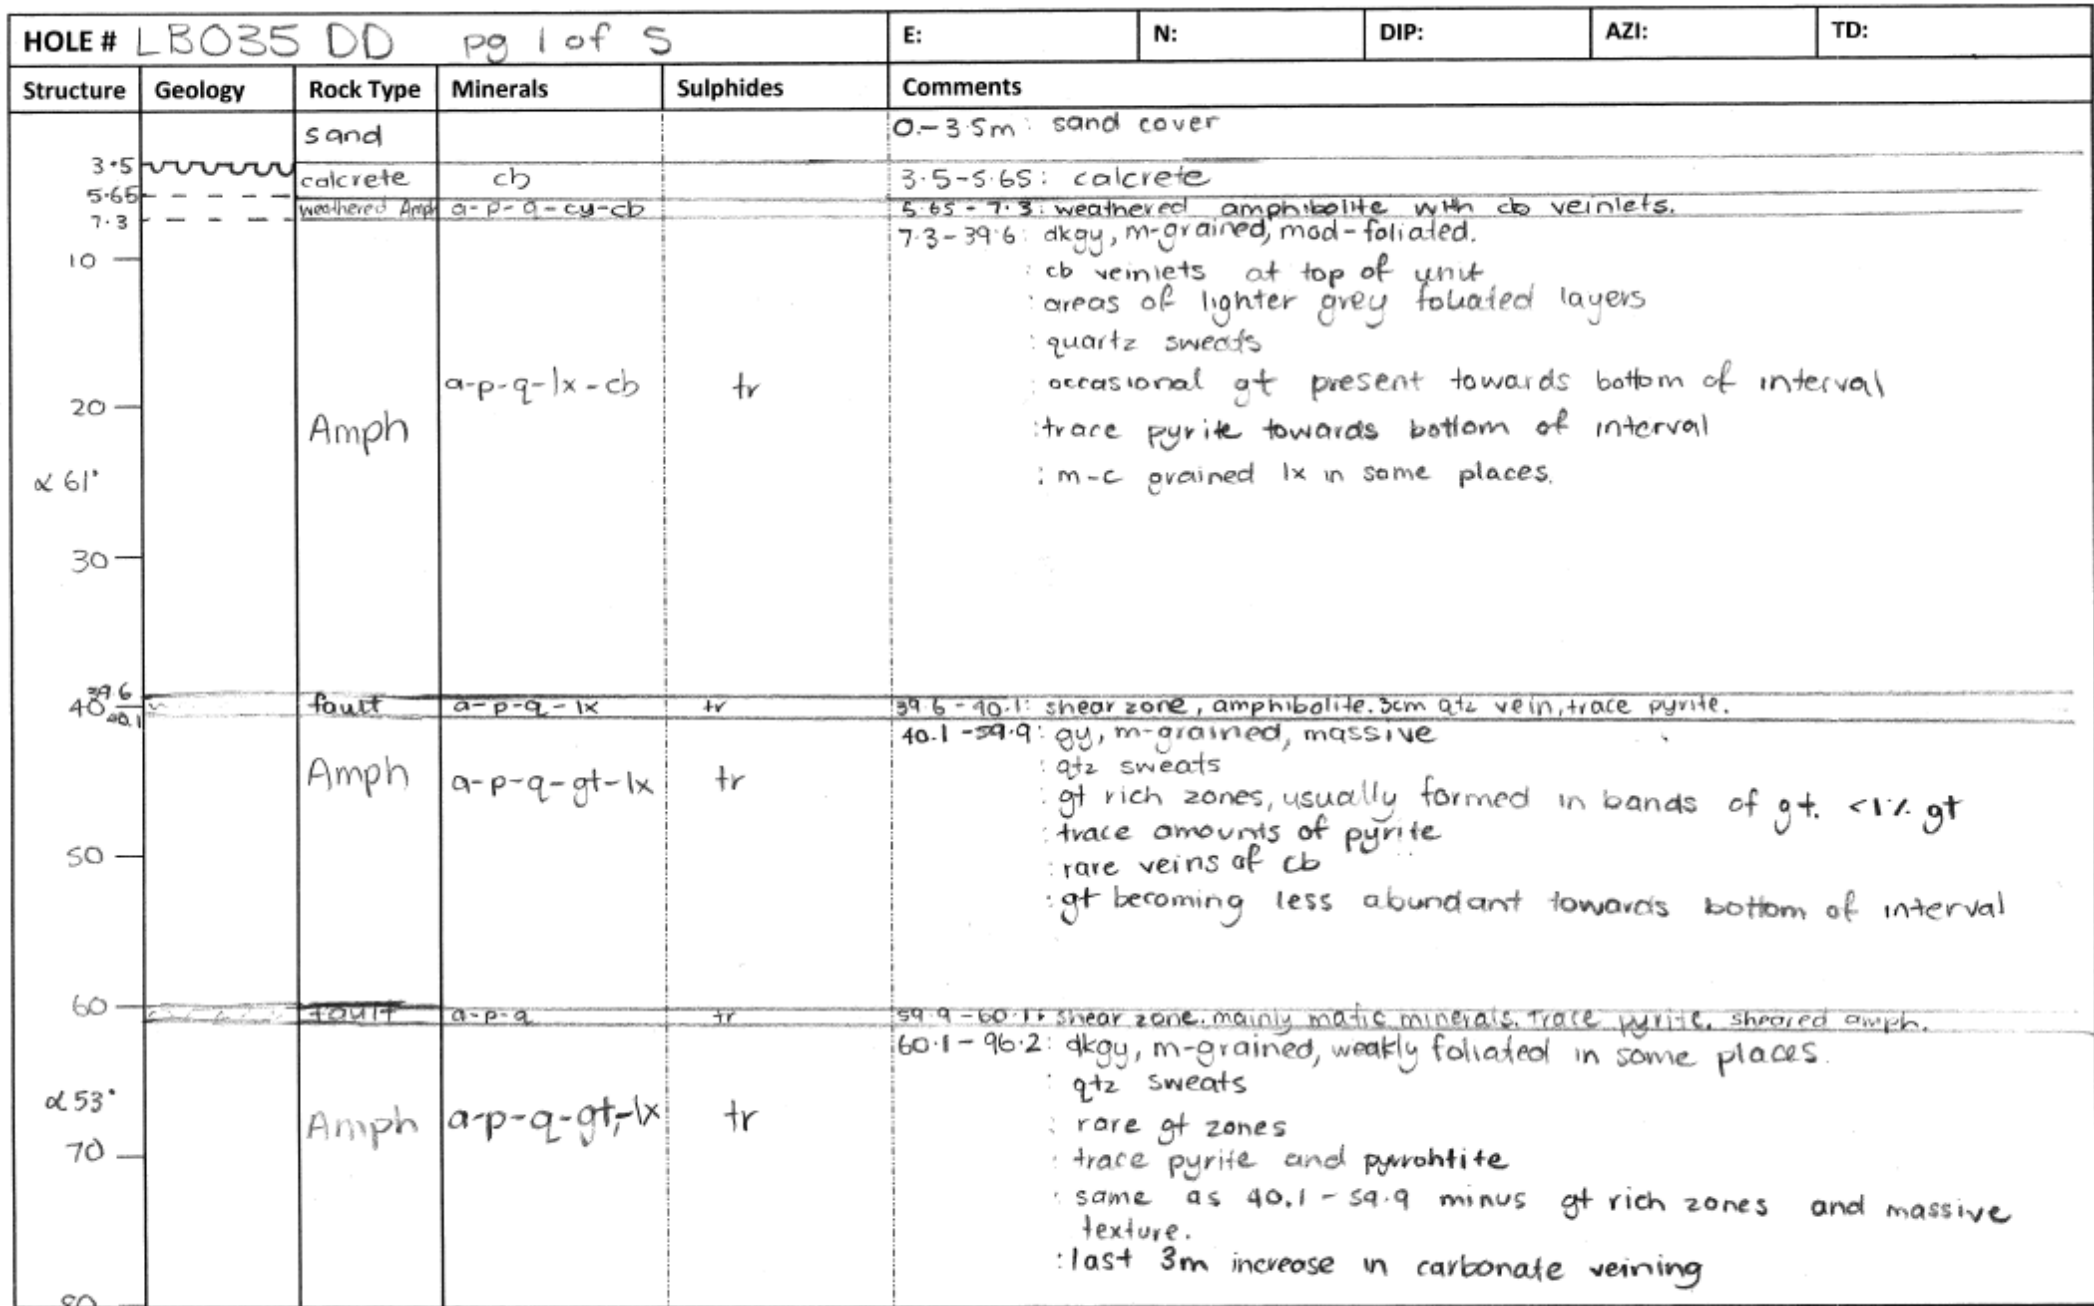 HOLE # LB035 DD pg 1 of 5 E: N: DIP: AZI: TD:
Structure Geology Rock Type Minerals Sulphides Comments
sand 0.-3.5m: sand cover
3.5 calcrete cb 3.5-5.65: calcrete
5.65 weathered Amph a-p-q-cy-cb 5.65-7.3: weathered amphibolite with cb veinlets.
7.3 7.3-39.6: dkgy, m-grained, mod-foliated.
10 : cb veinlets at top of unit
: areas of lighter grey foliated layers
: quartz sweats
a-p-q-lx-cb tr : occasional gt present towards bottom of interval
20
Amph : trace pyrite towards bottom of interval
α 61° : m-c grained lx in some places.
30
39.6
40 fault a-p-q-lx tr 39.6-40.1: shear zone, amphibolite. 3cm qtz vein, trace pyrite.
40.1
40.1-59.9: gy, m-grained, massive
: qtz sweats
Amph a-p-q-gt-lx tr : gt rich zones, usually formed in bands of gt. <1% gt
: trace amounts of pyrite
50 : rare veins of cb
: gt becoming less abundant towards bottom of interval
60 fault a-p-q tr 59.9-60.1: shear zone. mainly mafic minerals. Trace pyrite. sheared amph.
60.1-96.2: dkgy, m-grained, weakly foliated in some places.
: qtz sweats
α 53° Amph a-p-q-gt-lx tr : rare gt zones
70 : trace pyrite and pyrrohtite
: same as 40.1-59.9 minus gt rich zones and massive
texture.
: last 3m increase in carbonate veining
80